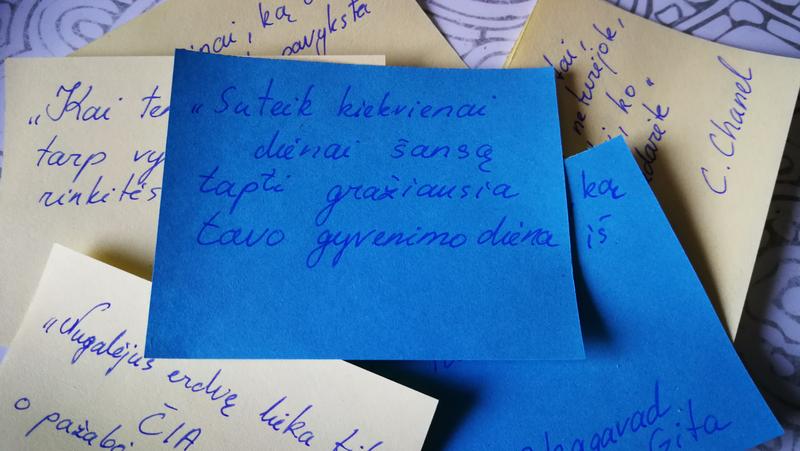 „Suteik kiekvienai
dienai šansą
tapti gražiausia
tavo gyvenimo diena
„Kai
tarp
rinkitės
ką
savyksta
neturėjote,
ko"
C. Chanel
ką
iš
„Nugalėjus erdvę lieka
ČIA
o
Bhagavad
Gita